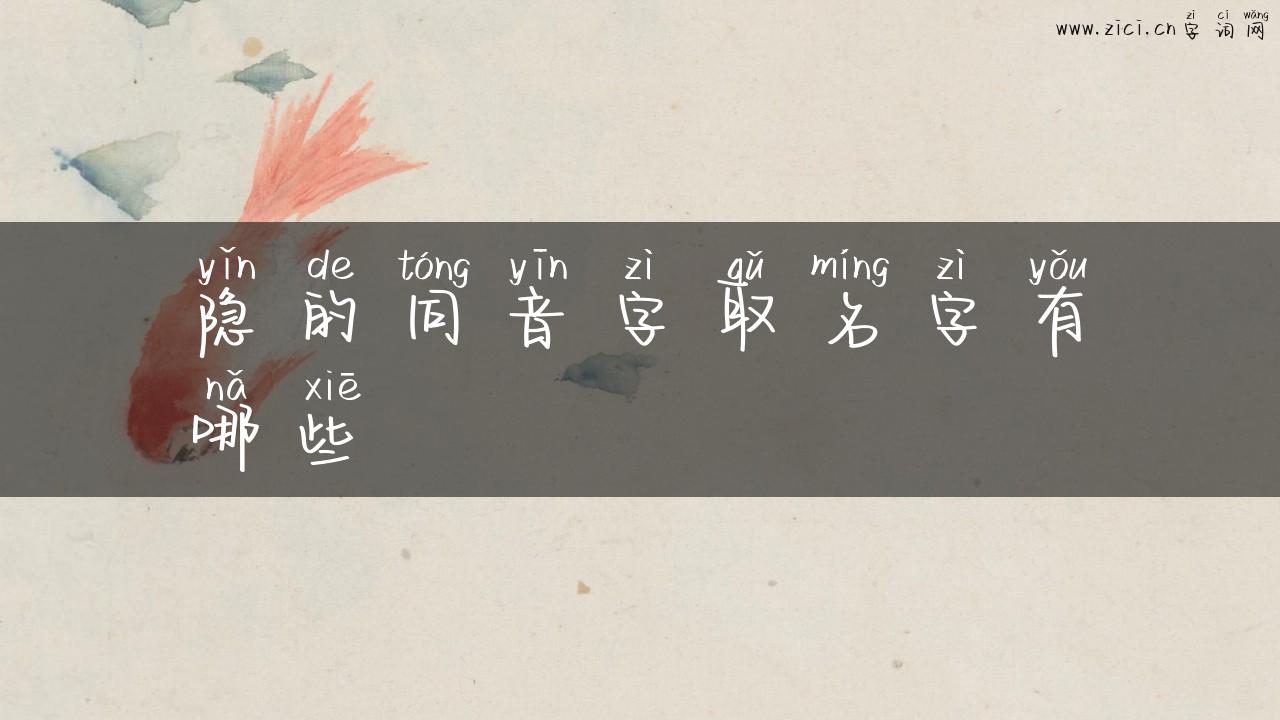 zì cí wǎng
www.zici.cn 字 词 网
yǐn de tóng yīn zì qǔ míng zì yǒu
隐 的 同 音 字 取 名 字 有
nǎ xiē
哪 些